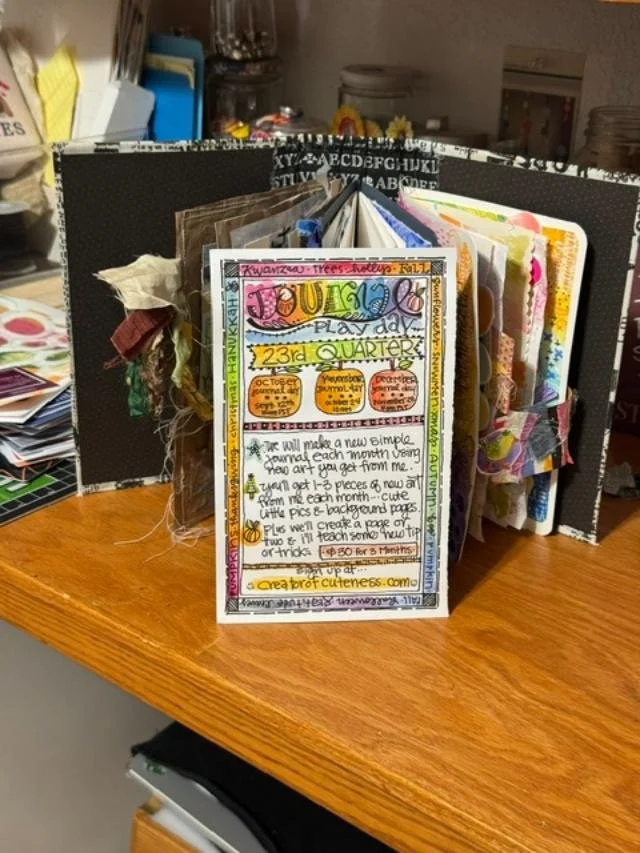 XYZ ABCDEFGHIJKL
XYZ ABCDEF
ES
Kwanzaa · Trees · holleys · Fall
JOURNAL
PLAY day
23rd QUARTER
OCTOBER
journal day
Sept
November
journal day
october 29
December
journal day
november
PUMPKINS · Thanksgiving · christmas · HANUKKAH
sunflowers
AUTUMN
PUMPKIN
We will make a new simple
journal each month using
new art you get from me.
you'll get 1-3 pieces of new art
from me each month... cute
little pics & background pages.
Plus we'll create a page or
two & I'll teach some new tip
or tricks. $30 for 3 Months
sign up at...
Creatorofcuteness.com
Fall · Halloween Gratitude Leaves